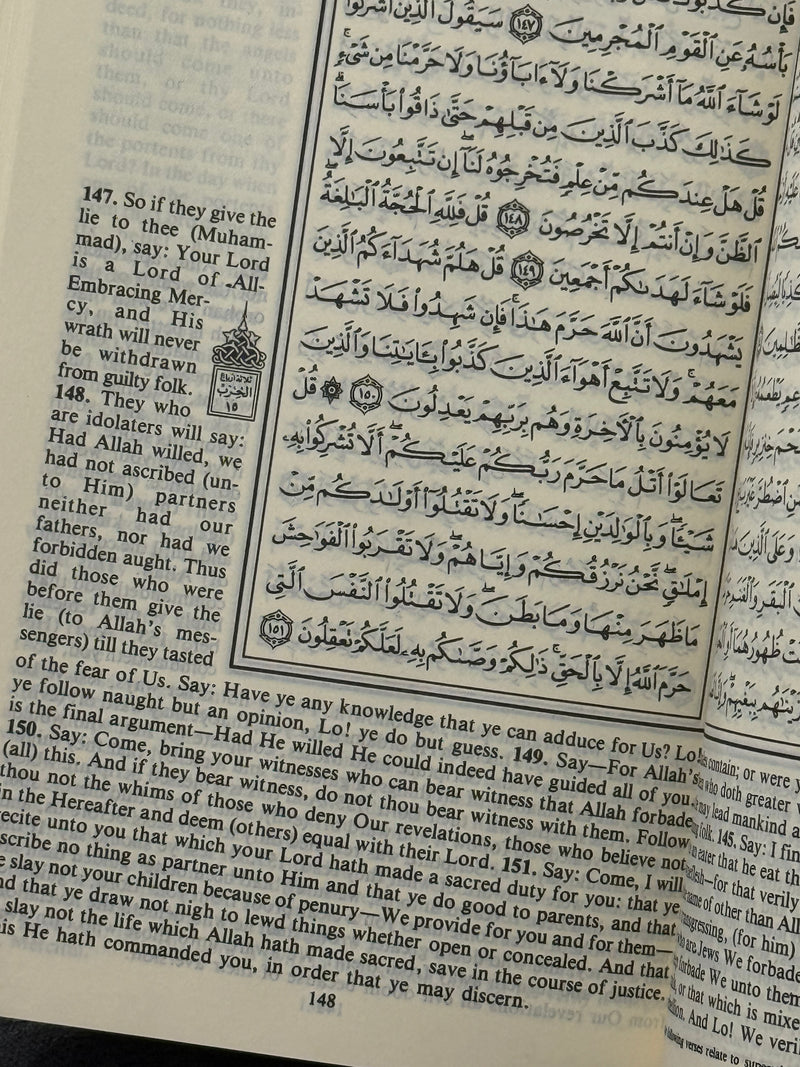 بَأْسُهُۥ عَنِ ٱلْقَوْمِ ٱلْمُجْرِمِينَ ١٤٧ سَيَقُولُ ٱلَّذِينَ أَشْرَكُوا۟
لَوْ شَآءَ ٱللَّهُ مَآ أَشْرَكْنَا وَلَآ ءَابَآؤُنَا وَلَا حَرَّمْنَا مِن شَىْءٍ ۚ
كَذَٰلِكَ كَذَّبَ ٱلَّذِينَ مِن قَبْلِهِمْ حَتَّىٰ ذَاقُوا۟ بَأْسَنَا ۗ
قُلْ هَلْ عِندَكُم مِّنْ عِلْمٍ فَتُخْرِجُوهُ لَنَآ ۖ إِن تَتَّبِعُونَ إِلَّا
ٱلظَّنَّ وَإِنْ أَنتُمْ إِلَّا تَخْرُصُونَ ١٤٨ قُلْ فَلِلَّهِ ٱلْحُجَّةُ ٱلْبَٰلِغَةُ ۖ
فَلَوْ شَآءَ لَهَدَىٰكُمْ أَجْمَعِينَ ١٤٩ قُلْ هَلُمَّ شُهَدَآءَكُمُ ٱلَّذِينَ
يَشْهَدُونَ أَنَّ ٱللَّهَ حَرَّمَ هَٰذَا ۖ فَإِن شَهِدُوا۟ فَلَا تَشْهَدْ
مَعَهُمْ ۚ وَلَا تَتَّبِعْ أَهْوَآءَ ٱلَّذِينَ كَذَّبُوا۟ بِـَٔايَٰتِنَا وَٱلَّذِينَ
لَا يُؤْمِنُونَ بِٱلْـَٔاخِرَةِ وَهُم بِرَبِّهِمْ يَعْدِلُونَ ١٥٠ ۞ قُلْ
تَعَالَوْا۟ أَتْلُ مَا حَرَّمَ رَبُّكُمْ عَلَيْكُمْ ۖ أَلَّا تُشْرِكُوا۟ بِهِۦ
شَيْـًٔا ۖ وَبِٱلْوَٰلِدَيْنِ إِحْسَٰنًا ۖ وَلَا تَقْتُلُوٓا۟ أَوْلَٰدَكُم مِّنْ
إِمْلَٰقٍ ۖ نَّحْنُ نَرْزُقُكُمْ وَإِيَّاهُمْ ۖ وَلَا تَقْرَبُوا۟ ٱلْفَوَٰحِشَ
مَا ظَهَرَ مِنْهَا وَمَا بَطَنَ ۖ وَلَا تَقْتُلُوا۟ ٱلنَّفْسَ ٱلَّتِى
حَرَّمَ ٱللَّهُ إِلَّا بِٱلْحَقِّ ۚ ذَٰلِكُمْ وَصَّىٰكُم بِهِۦ لَعَلَّكُمْ تَعْقِلُونَ ١٥١
147. So if they give the
lie to thee (Muham-
mad), say: Your Lord
is a Lord of All-
Embracing Mer-
cy, and His
wrath will never
be withdrawn
from guilty folk.
ثلاثة أرباع
الحزب
١٥
148. They who
are idolaters will say:
Had Allah willed, we
had not ascribed (un-
to Him) partners
neither had our
fathers, nor had we
forbidden aught. Thus
did those who were
before them give the
lie (to Allah's mes-
sengers) till they tasted
of the fear of Us. Say: Have ye any knowledge that ye can adduce for Us? Lo!
ye follow naught but an opinion, Lo! ye do but guess. 149. Say—For Allah's
is the final argument—Had He willed He could indeed have guided all of you.
150. Say: Come, bring your witnesses who can bear witness that Allah forbade
(all) this. And if they bear witness, do not thou bear witness with them. Follow
thou not the whims of those who deny Our revelations, those who believe not
in the Hereafter and deem (others) equal with their Lord. 151. Say: Come, I will
recite unto you that which your Lord hath made a sacred duty for you: that ye
scribe no thing as partner unto Him and that ye do good to parents, and that
slay not your children because of penury—We provide for you and for them—
that ye draw not nigh to lewd things whether open or concealed. And that
slay not the life which Allah hath made sacred, save in the course of justice.
is He hath commanded you, in order that ye may discern.
148
contain; or were
who doth greater
may lead mankind
folk. 145. Say: I
that he eat
for that verily
of other than
(for him)
are Jews We forbade
We unto them
or that which is
And Lo! We
verses relate to